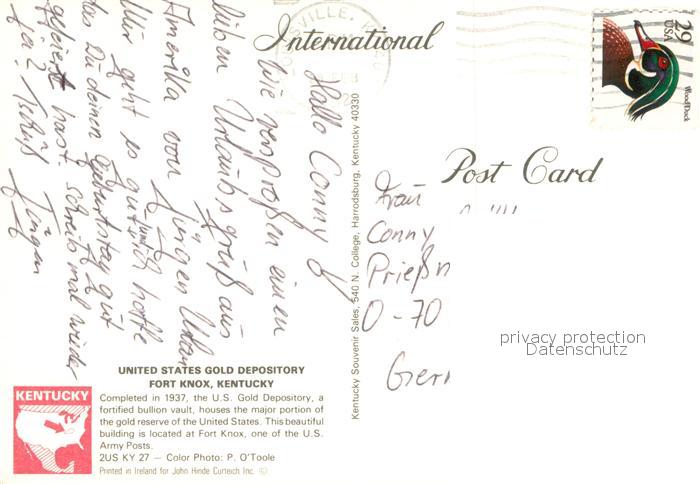 International
Post Card
29
USA
Wood Duck
Hallo Conny
Wie versproßen einen
lieben Urlaubsgruß aus
Amerika von Jürgen Urban
Mir geht es gut und ich hoffe
das Du deinen Geburtstag gut
gefeiert hast. schreib mal wieder
Jürgen
Frau
Conny
Prießn
O-70
Germ
privacy protection
Datenschutz
Kentucky Souvenir Sales, 540 N. College, Harrodsburg, Kentucky 40330
UNITED STATES GOLD DEPOSITORY
FORT KNOX, KENTUCKY
KENTUCKY
Completed in 1937, the U.S. Gold Depository, a
fortified bullion vault, houses the major portion of
the gold reserve of the United States. This beautiful
building is located at Fort Knox, one of the U.S.
Army Posts.
2US KY 27 — Color Photo: P. O'Toole
Printed in Ireland for John Hinde Curteich Inc. ©